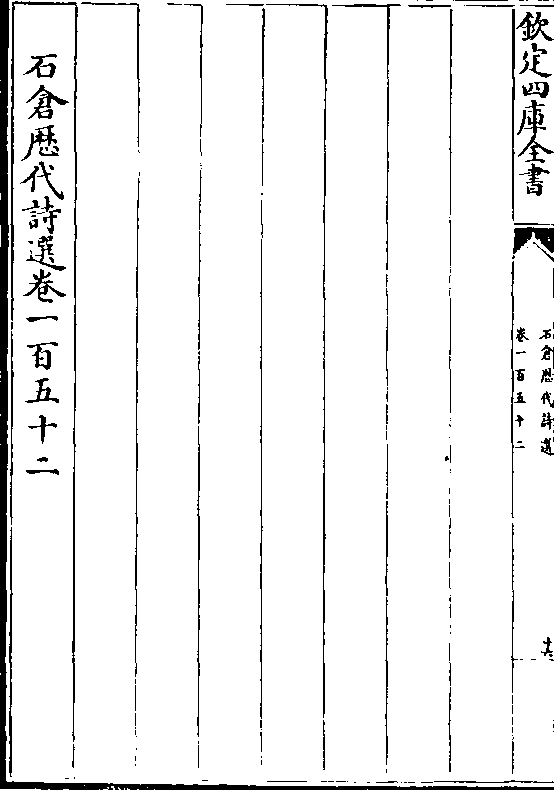 欽定四庫全書
石倉歴代詩選
卷一百五十二
石倉歴代詩選卷一百五十二